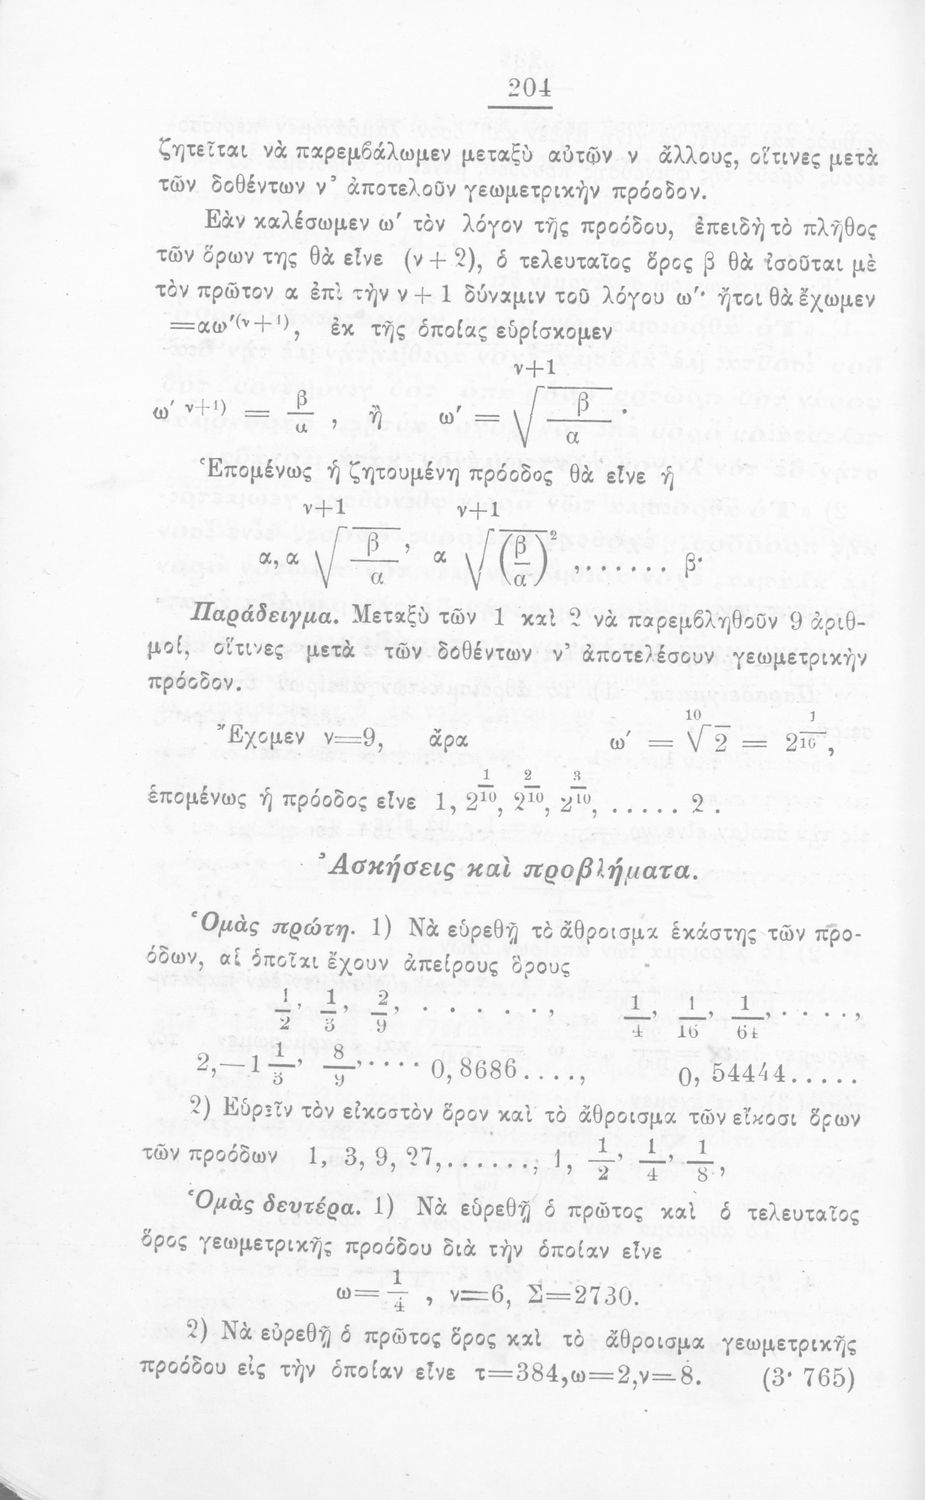 204
ζητεῖται νὰ παρεμβάλωμεν μεταξὺ αὐτῶν ν ἄλλους, οἵτινες μετὰ
τῶν δοθέντων ν’ ἀποτελοῦν γεωμετρικὴν πρόοδον.
Ἐὰν καλέσωμεν ω′ τὸν λόγον τῆς προόδου, ἐπειδὴ τὸ πλῆθος
τῶν ὅρων της θὰ εἶνε (ν + 2), ὁ τελευταῖος ὅρος β θὰ ἰσοῦται μὲ
τὸν πρῶτον α ἐπὶ τὴν ν + 1 δύναμιν τοῦ λόγου ω′· ἤτοι θὰ ἔχωμεν
=αω′⁽ᵛ⁺¹⁾, ἐκ τῆς ὁποίας εὑρίσκομεν
ω′ ᵛ⁺¹⁾ = β/α , ἢ ω′ = ν+1√β/α .
Ἑπομένως ἡ ζητουμένη πρόοδος θὰ εἶνε ἡ
α, α ν+1√β/α , α ν+1√(β/α)² ,...... β·
Παράδειγμα. Μεταξὺ τῶν 1 καὶ 2 νὰ παρεμβληθοῦν 9 ἀριθ-
μοί, οἵτινες μετὰ τῶν δοθέντων ν’ ἀποτελέσουν γεωμετρικὴν
πρόοδον.
Ἔχομεν ν=9, ἄρα ω′ = 10√2 = 2^1/10,
ἑπομένως ἡ πρόοδος εἶνε 1, 2^1/10, 2^2/10, 2^3/10, ...... 2 .
Ἀσκήσεις καὶ προβλήματα.
Ὁμὰς πρώτη. 1) Νὰ εὑρεθῇ τὸ ἄθροισμα ἑκάστης τῶν προ-
όδων, αἱ ὁποῖαι ἔχουν ἀπείρους ὅρους
1/2, 1/3, 2/9, . . . . . ., 1/4, 1/16, 1/64, . . . . .,
2,—1 1/3, 8/9,..... 0,8686....., 0, 54444.....
2) Εὑρεῖν τὸν εἰκοστὸν ὅρον καὶ τὸ ἄθροισμα τῶν εἴκοσι ὅρων
τῶν προόδων 1, 3, 9, 27,......., 1, 1/2, 1/4, 1/8,
Ὁμὰς δευτέρα. 1) Νὰ εὑρεθῇ ὁ πρῶτος καὶ ὁ τελευταῖος
ὅρος γεωμετρικῆς προόδου διὰ τὴν ὁποίαν εἶνε
ω= 1/4 , ν=6, Σ=2730.
2) Νὰ εὑρεθῇ ὁ πρῶτος ὅρος καὶ τὸ ἄθροισμα γεωμετρικῆς
προόδου εἰς τὴν ὁποίαν εἶνε τ=384,ω=2,ν=8. (3· 765)